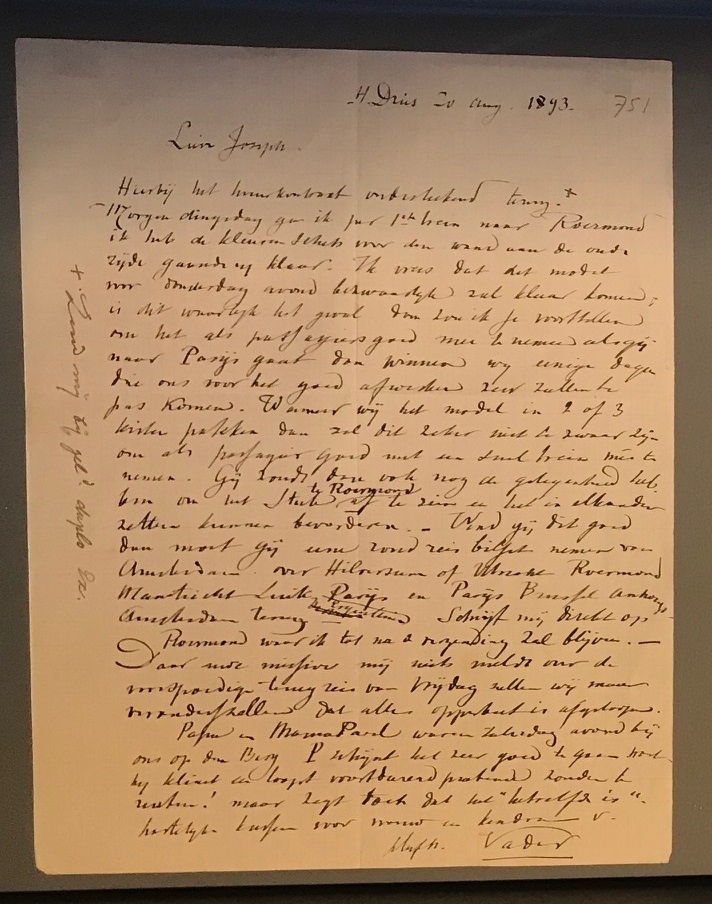 H. Dries 20 aug. 1893. 751
Lieve Joseph
Hierbij het huurkontraat onderteekend terug. +
Morgen dingsdag ga ik per 1ste trein naar Roermond
ik heb de kleuren schets voor den wand aan de oude
zijde klaar. Ik vrees dat het model
voor donderdag avond bezwaarlijk zal klaar komen;
is dit waarlijk het geval dan zou ik je voorstellen
om het als passagiersgoed mee te nemen als gij
naar Parijs gaat dan winnen wij eenige dagen
die ons voor het goed afwerken zeer zullen te
pas komen. Wanneer wij het model in 2 of 3
kisten pakken dan zal dit zeker niet te zwaar zijn
om als passagier goed met een snel trein mee te
nemen. Gij zoudt dan ook nog de gelegenheid heb-
ben om het stuk te Roermond af te zien en het in elkander
zetten kunnen bevorderen. – Vind gij dit goed
dan moet gij eene rondreis biljet nemen van
Amsterdam over Hilversum of Utrecht Roermond
Maastricht Luik Parijs en Parijs Brussel
Amsterdam terug Schrijf mij direkt op
Roermond waar ik tot na de verzending zal blijven. –
Daar uwe missive mij niets meldt over de
voorspoedige terug reis van Vrijdag zullen wij maar
veronderstellen dat alles opperbest is afgeloopen.
Papa en Mama Paul waren zaterdag avond bij
ons op den Berg P schijnt het zeer goed te gaan want
hij klimt en loopt voortdurend pratend zonder te
rusten! maar zegt toch dat het "hetzelfde is".
hartelijke kussen voor vrouw en kinderen v.
Vader
+ Zend mij bij gel. duplo